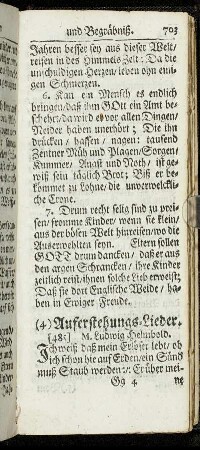 und Begräbniß. 703
Jahren besser sey aus dieser Welt/
reisen in des Himmels Zelt: Da die
unschuldigen Herzen/ leben ohn einigen
Schmerzen.
6. Kan ein Mensch es endlich
bringen/ daß ihm GOtt ein Amt be-
schehrt/ da wird er vor allen Dingen/
Neider haben unerhört; Die ihn
drücken/ hassen/ nagen: tausend
Zentner Müh und Plagen/ Sorgen/
Kummer/ Angst und Noth/ ist ge-
wiß sein täglich Brot; Biß er be-
kommet zu Lohne/ die unverwelckli-
che Crone.
7. Drum recht selig sind zu prei-
sen/ fromme Kinder/ wenn sie klein/
aus der bösen Welt hinreisen/ wo die
Auserwehlten seyn. Eltern sollen
GOTT drum dancken/ daß er aus
den argen Schrancken/ ihre Kinder
zeitlich reist/ ihnen solche Lieb erweist;
Daß sie dort Englische Weide/ ha-
ben in Ewiger Freude.
(4) Auferstehungs-Lieder.
[485] M. Ludwig Helmbold.
Ich weiß daß mein Erlöser lebt/ ob
ich schon hie auf Erden/ ein Staub
muß Staub werden: Er über mei-
Gg 4 ne